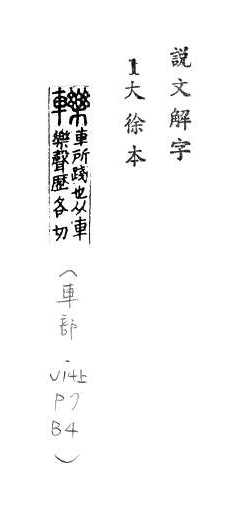 説文解字
1大徐本
轢 車所踐也从車
樂聲歷各切
(車部.V14上P7B4)